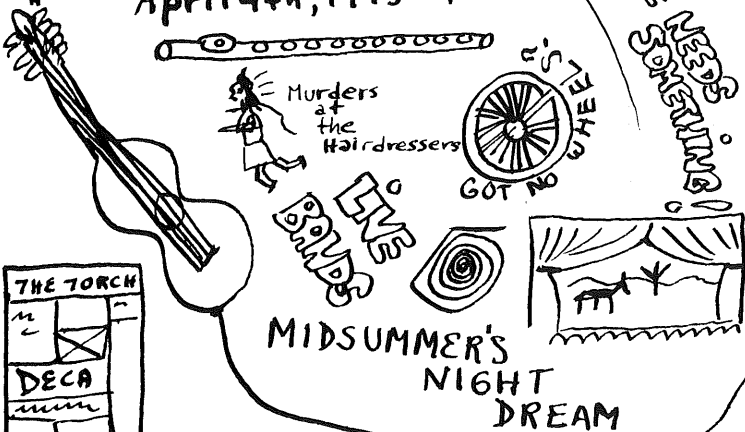 Murders
at
the
Hairdressers
GOT NO WHEELS
NEEDS
SOMETHING!
LIVE
BANDS
THE TORCH
DECA
MIDSUMMER'S
NIGHT
DREAM